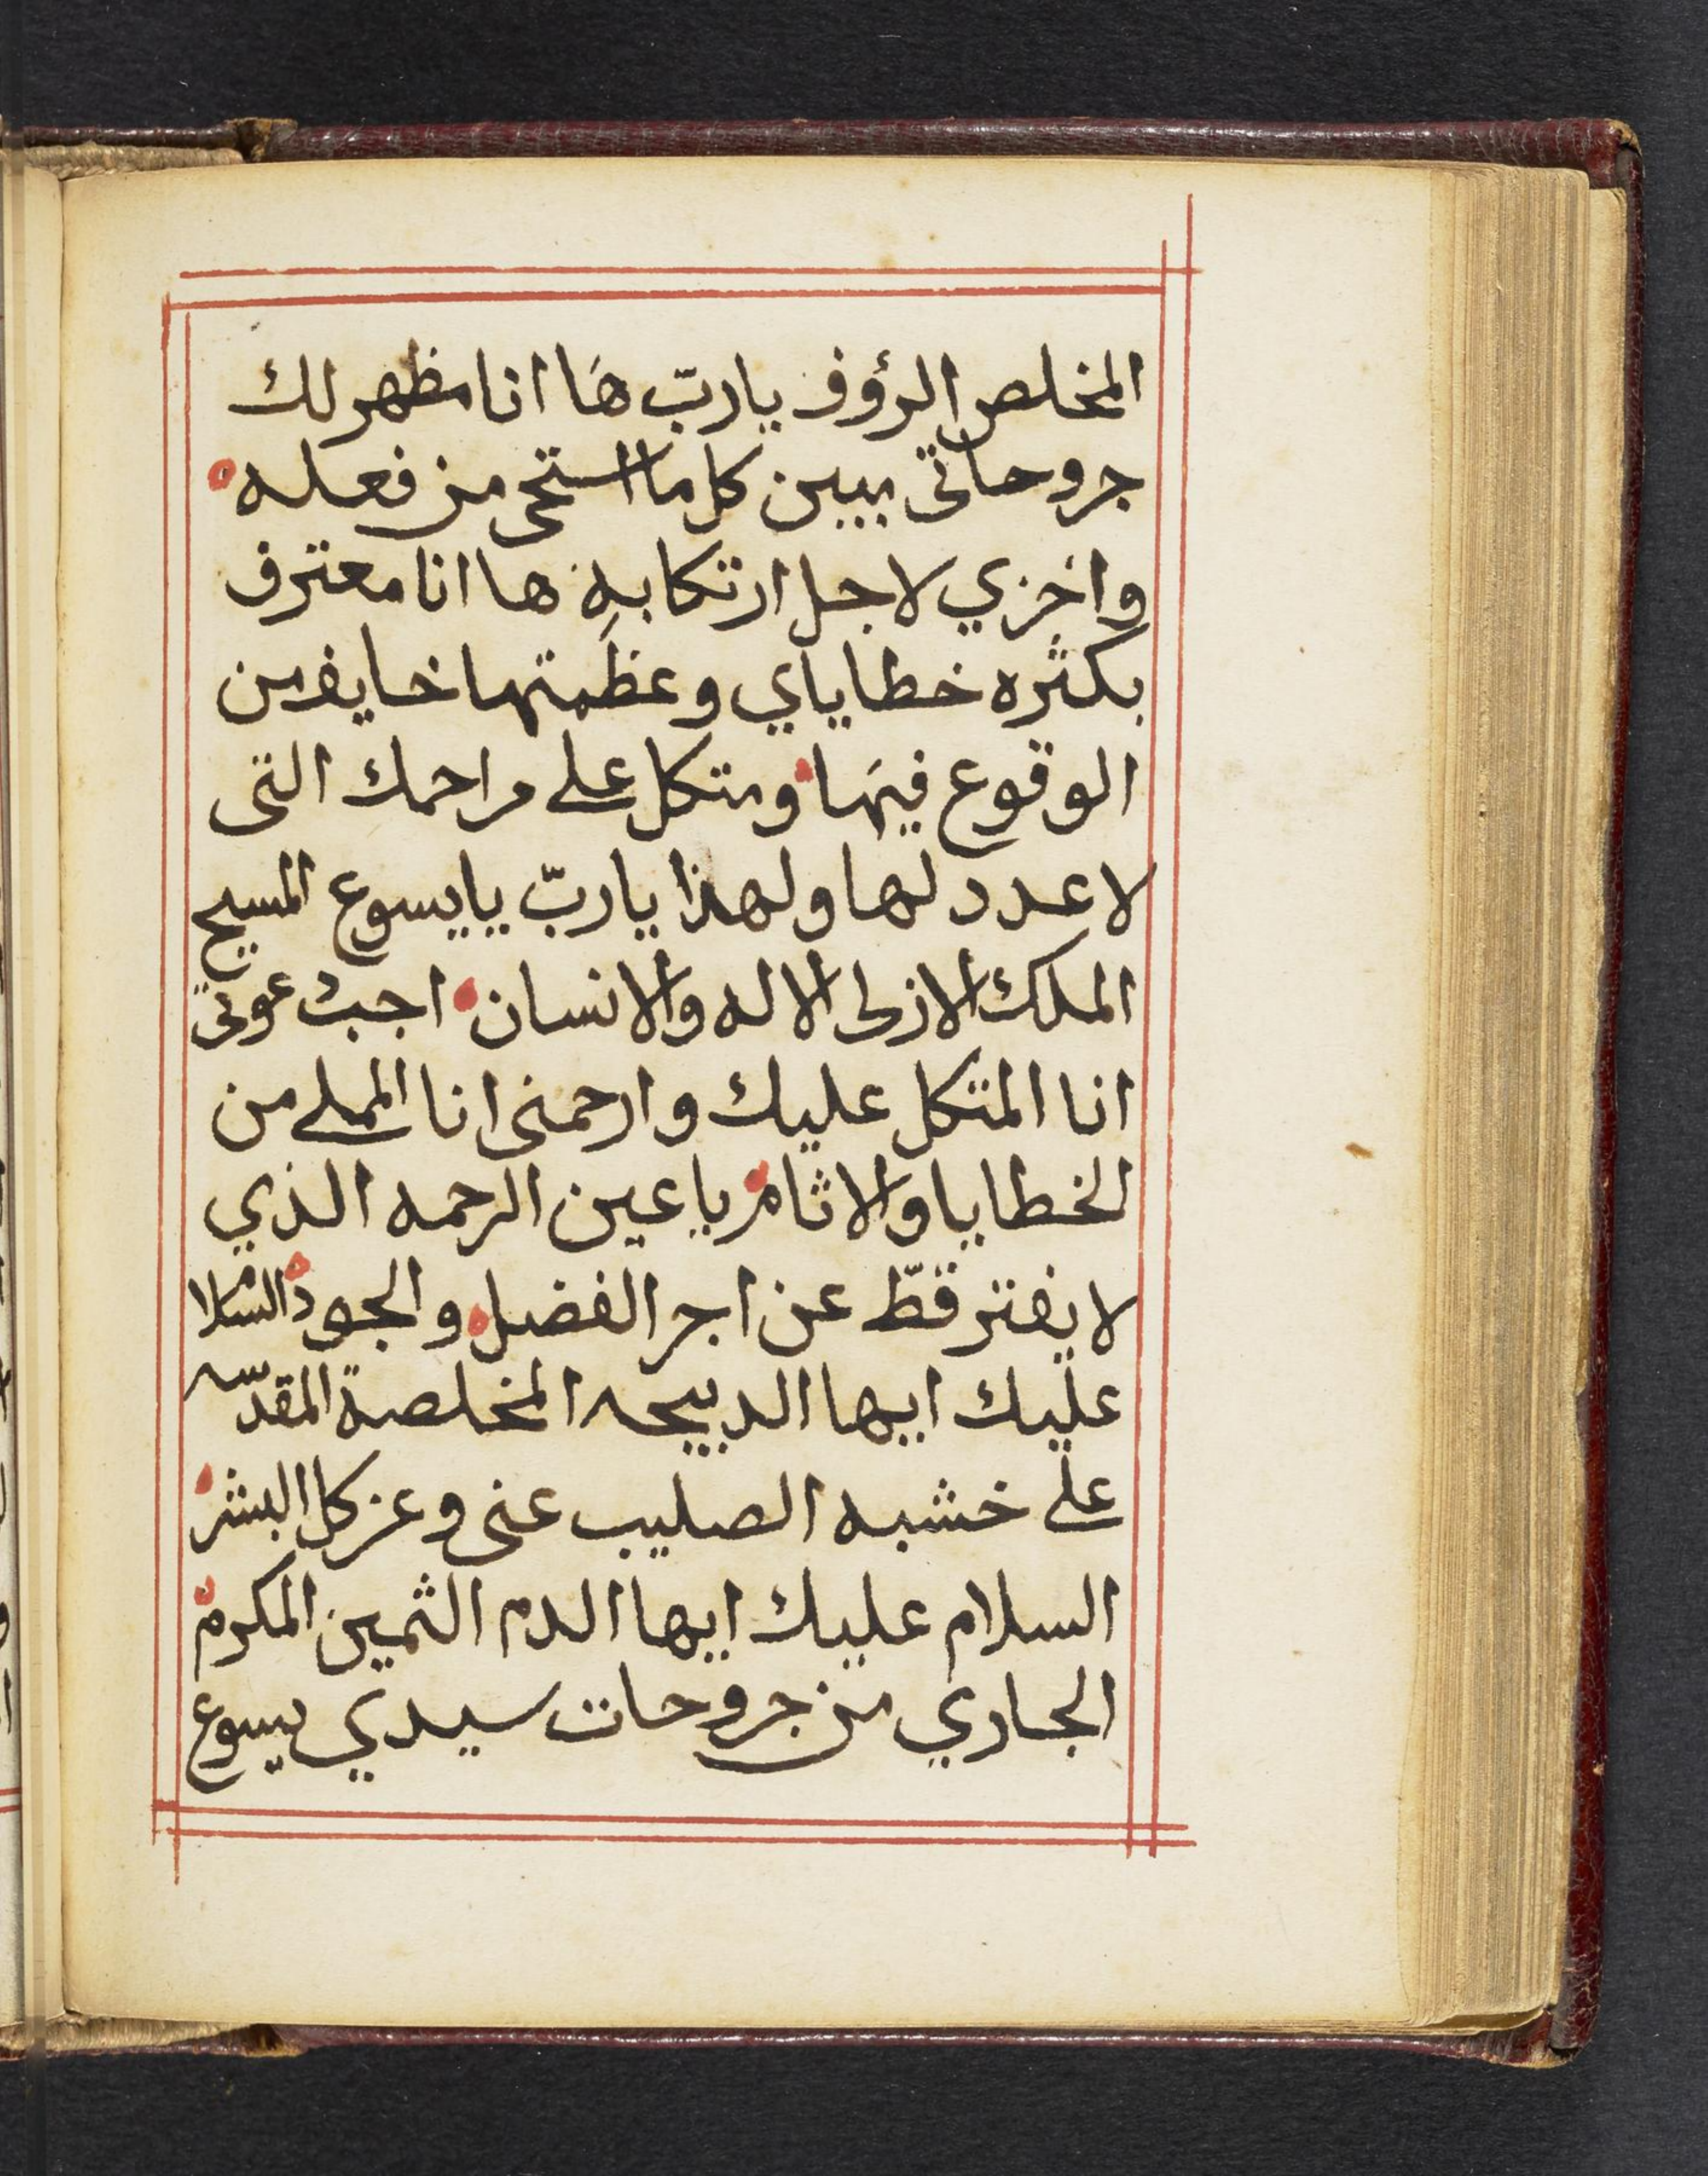 المخلص الرؤوف يا ربّ هَا انا مظهر لك
جروحاتى مبين كل ما استحى من فعله
واخزي لاجل ارتكابهِ ها انا معترف
بكثره خطاياي وعظمتها خايف من
الوقوع فيهَا ومتكل على مراحمك التى
لا عدد لها ولهذا يا ربّ يا يسوع المسيح
الملك الازلى الاله والانسان اجب عونى
انا المتكل عليك وارحمنى انا الملى من
الخطايا والاثام يا عين الرحمه الذي
لا يفتر قطّ عن اجر الفضل والجود السلام
عليك ايها الدبيحه المخلصة المقدّسه
على خشبه الصليب عنى وعن كل البشر
السلام عليك ايها الدم الثمين المكرم
الجاري من جروحات سيدي يسوع